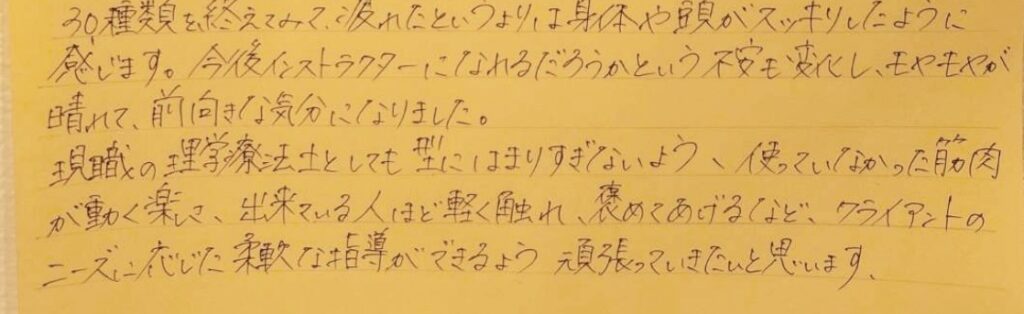 30種類を終えてみて、疲れたというよりは身体や頭がスッキリしたように
感じます。今後インストラクターになれるだろうかという不安も変化し、モヤモヤが
晴れて、前向きな気分になりました。
現職の理学療法士としても型にはまりすぎないよう、使っていなかった筋肉
が動く楽しさ、出来ている人ほど軽く触れ、褒めてあげるなど、クライアントの
ニーズに応じた柔軟な指導ができるよう頑張っていきたいと思います、